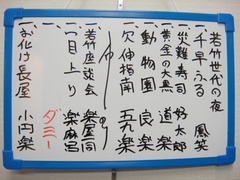 若竹世代の夜
一 千早ふる 鳳笑
一 災難寿司 好太郎
一 黄金の大黒 道楽
一 動物園 良楽
一 欠伸指南 五九楽
仲入り
一 若竹座談会 楽屋同
一 一目上り 楽麻呂
一 ダミー
一 お化け長屋 小円楽